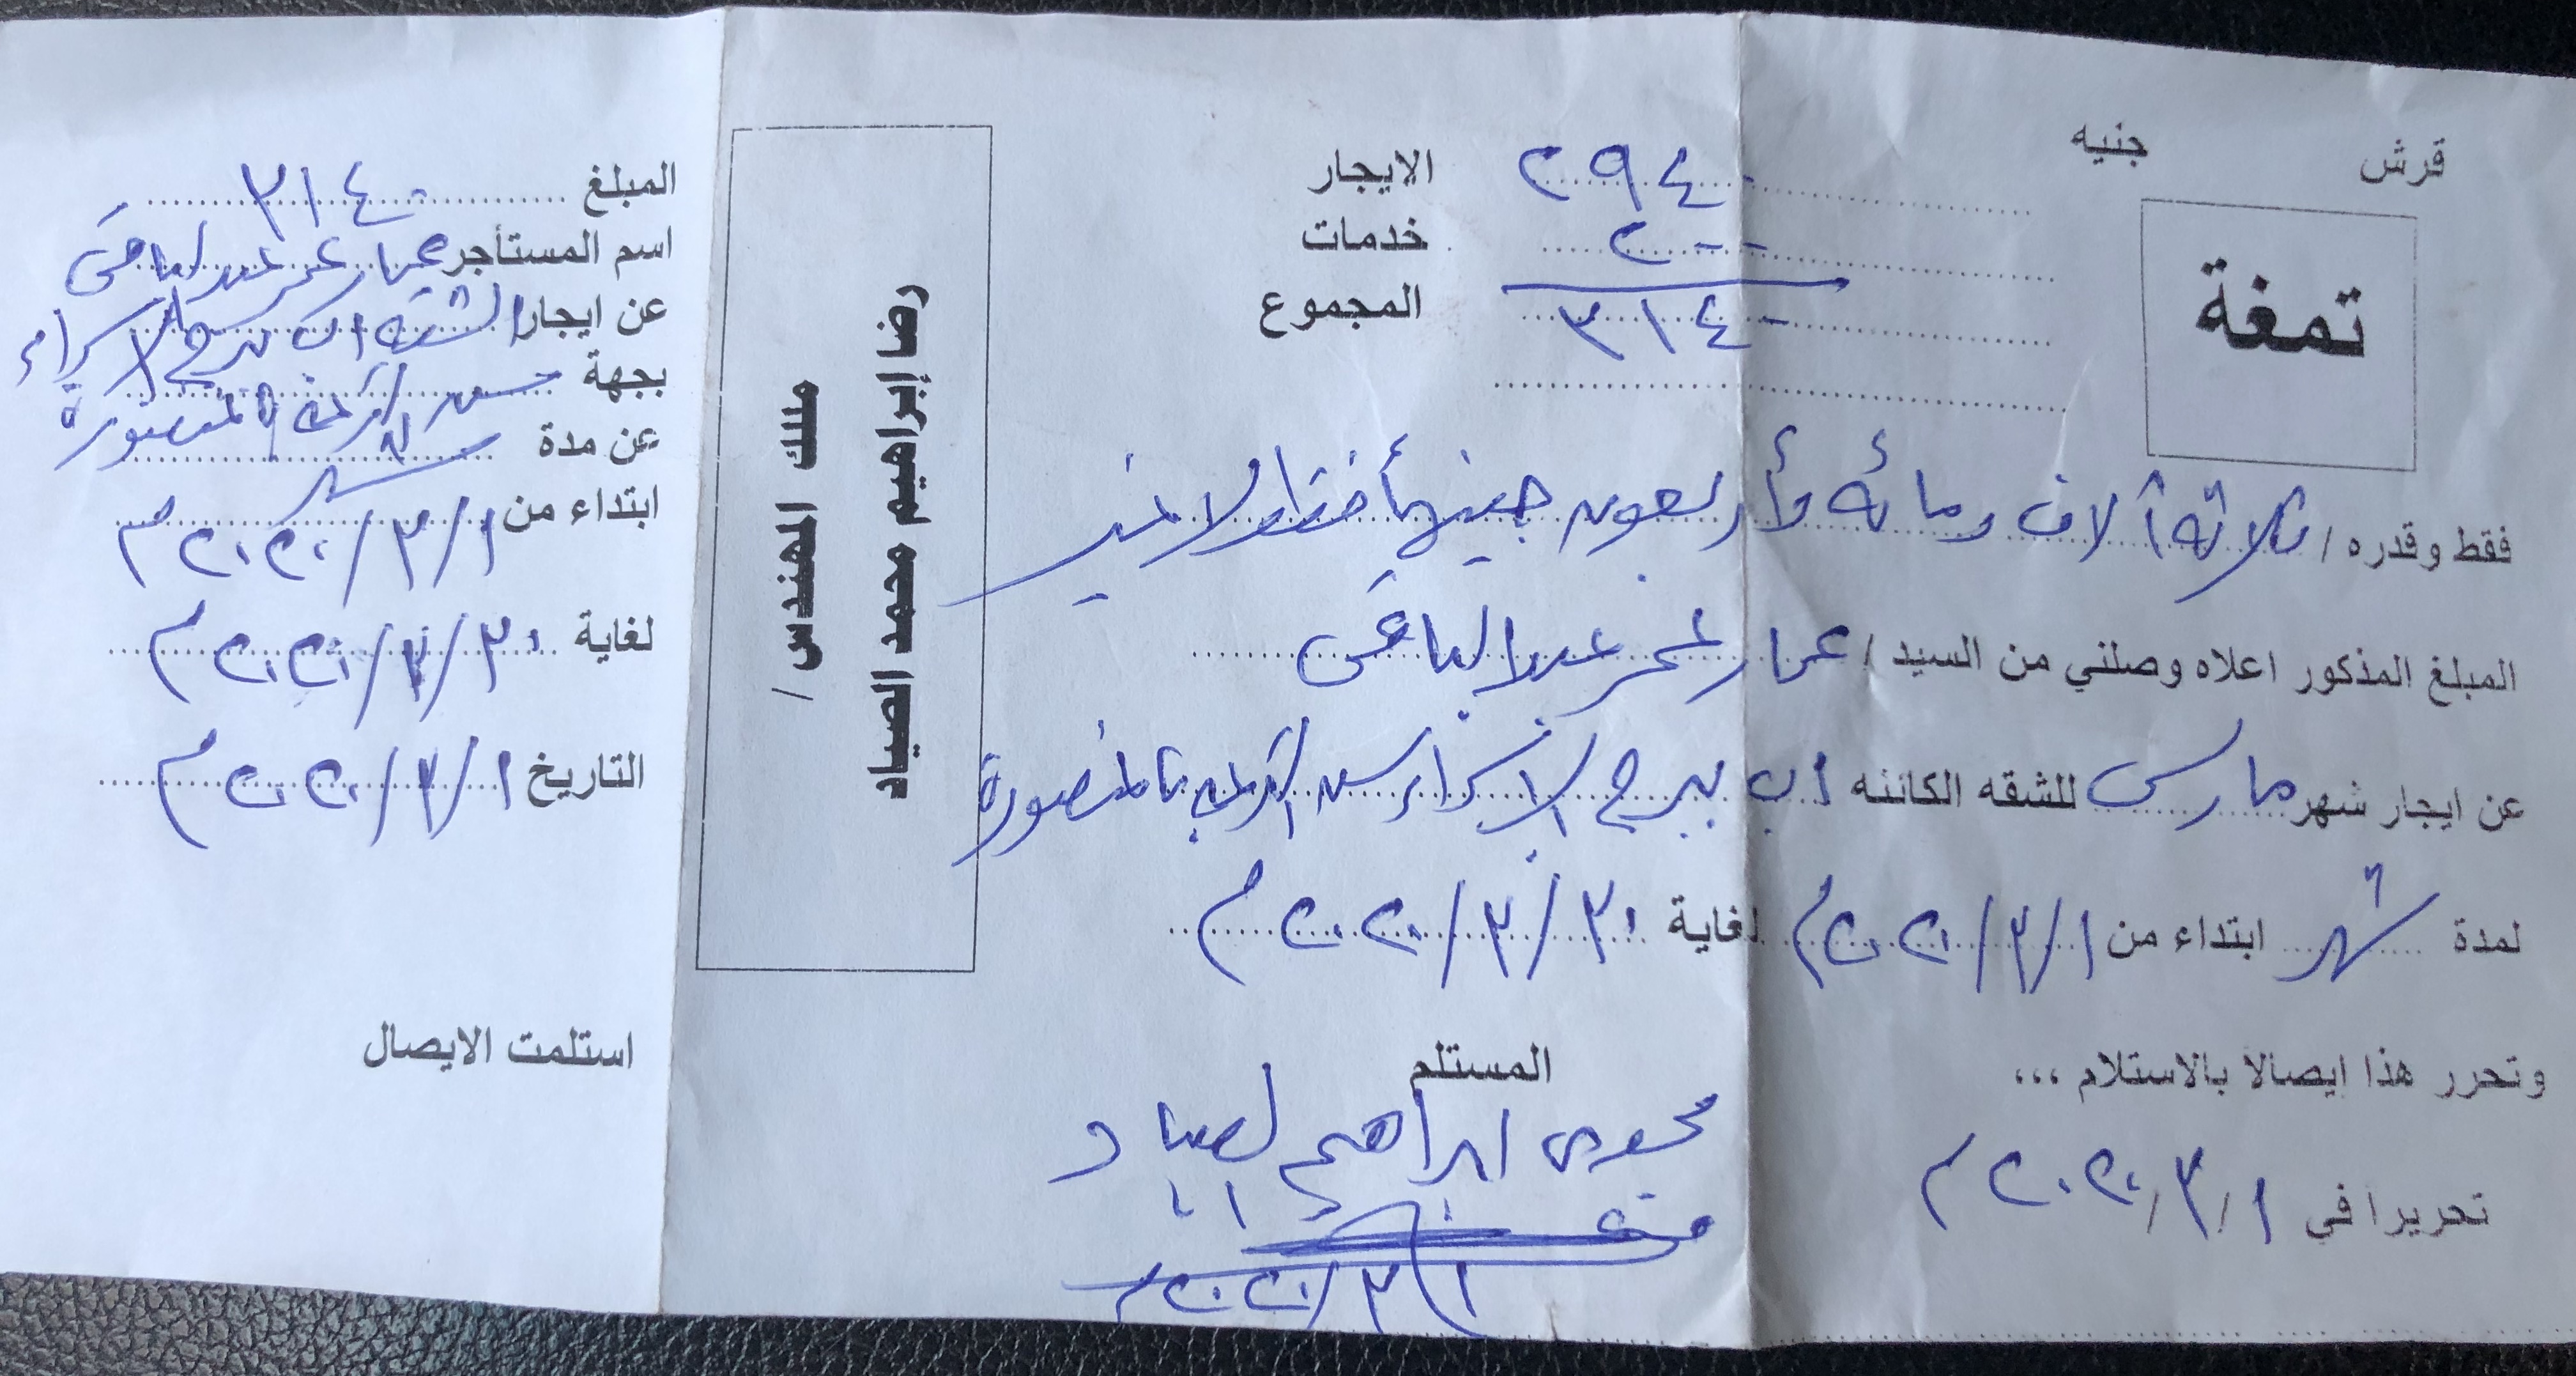 قرش جنيه
تمغة
الايجار ٢٩٤٠
خدمات ٢٠٠
المجموع ٣١٤٠
فقط وقدره / ثلاثة آلاف ومائه وأربعون جنيهاً فقط لاغير
المبلغ المذكور اعلاه وصلني من السيد / عمار عمر عبدالباقى
عن ايجار شهر مارس للشقه الكائنه ١ب ببرج الاسراء بالمنصورة
لمدة شهر ابتداء من ٢٠٢٠/٣/١م لغاية ٢٠٢٠/٣/٣٠م
وتحرر هذا ايصالا بالاستلام ،،،
تحريرا في ٢٠٢٠/٣/١م
المستلم
ابراهيم الصياد
٢٠٢٠/٣/١م
ملك المهندس /
رضا إبراهيم محمد الصياد
المبلغ ٣١٤٠
اسم المستأجر عمار عمر عبدالباقى
عن ايجار الشقه ١ب برج الاسراء
بجهة المنصورة
عن مدة شهر
ابتداء من ٢٠٢٠/٣/١م
لغاية ٢٠٢٠/٣/٣٠م
التاريخ ٢٠٢٠/٣/١م
استلمت الايصال